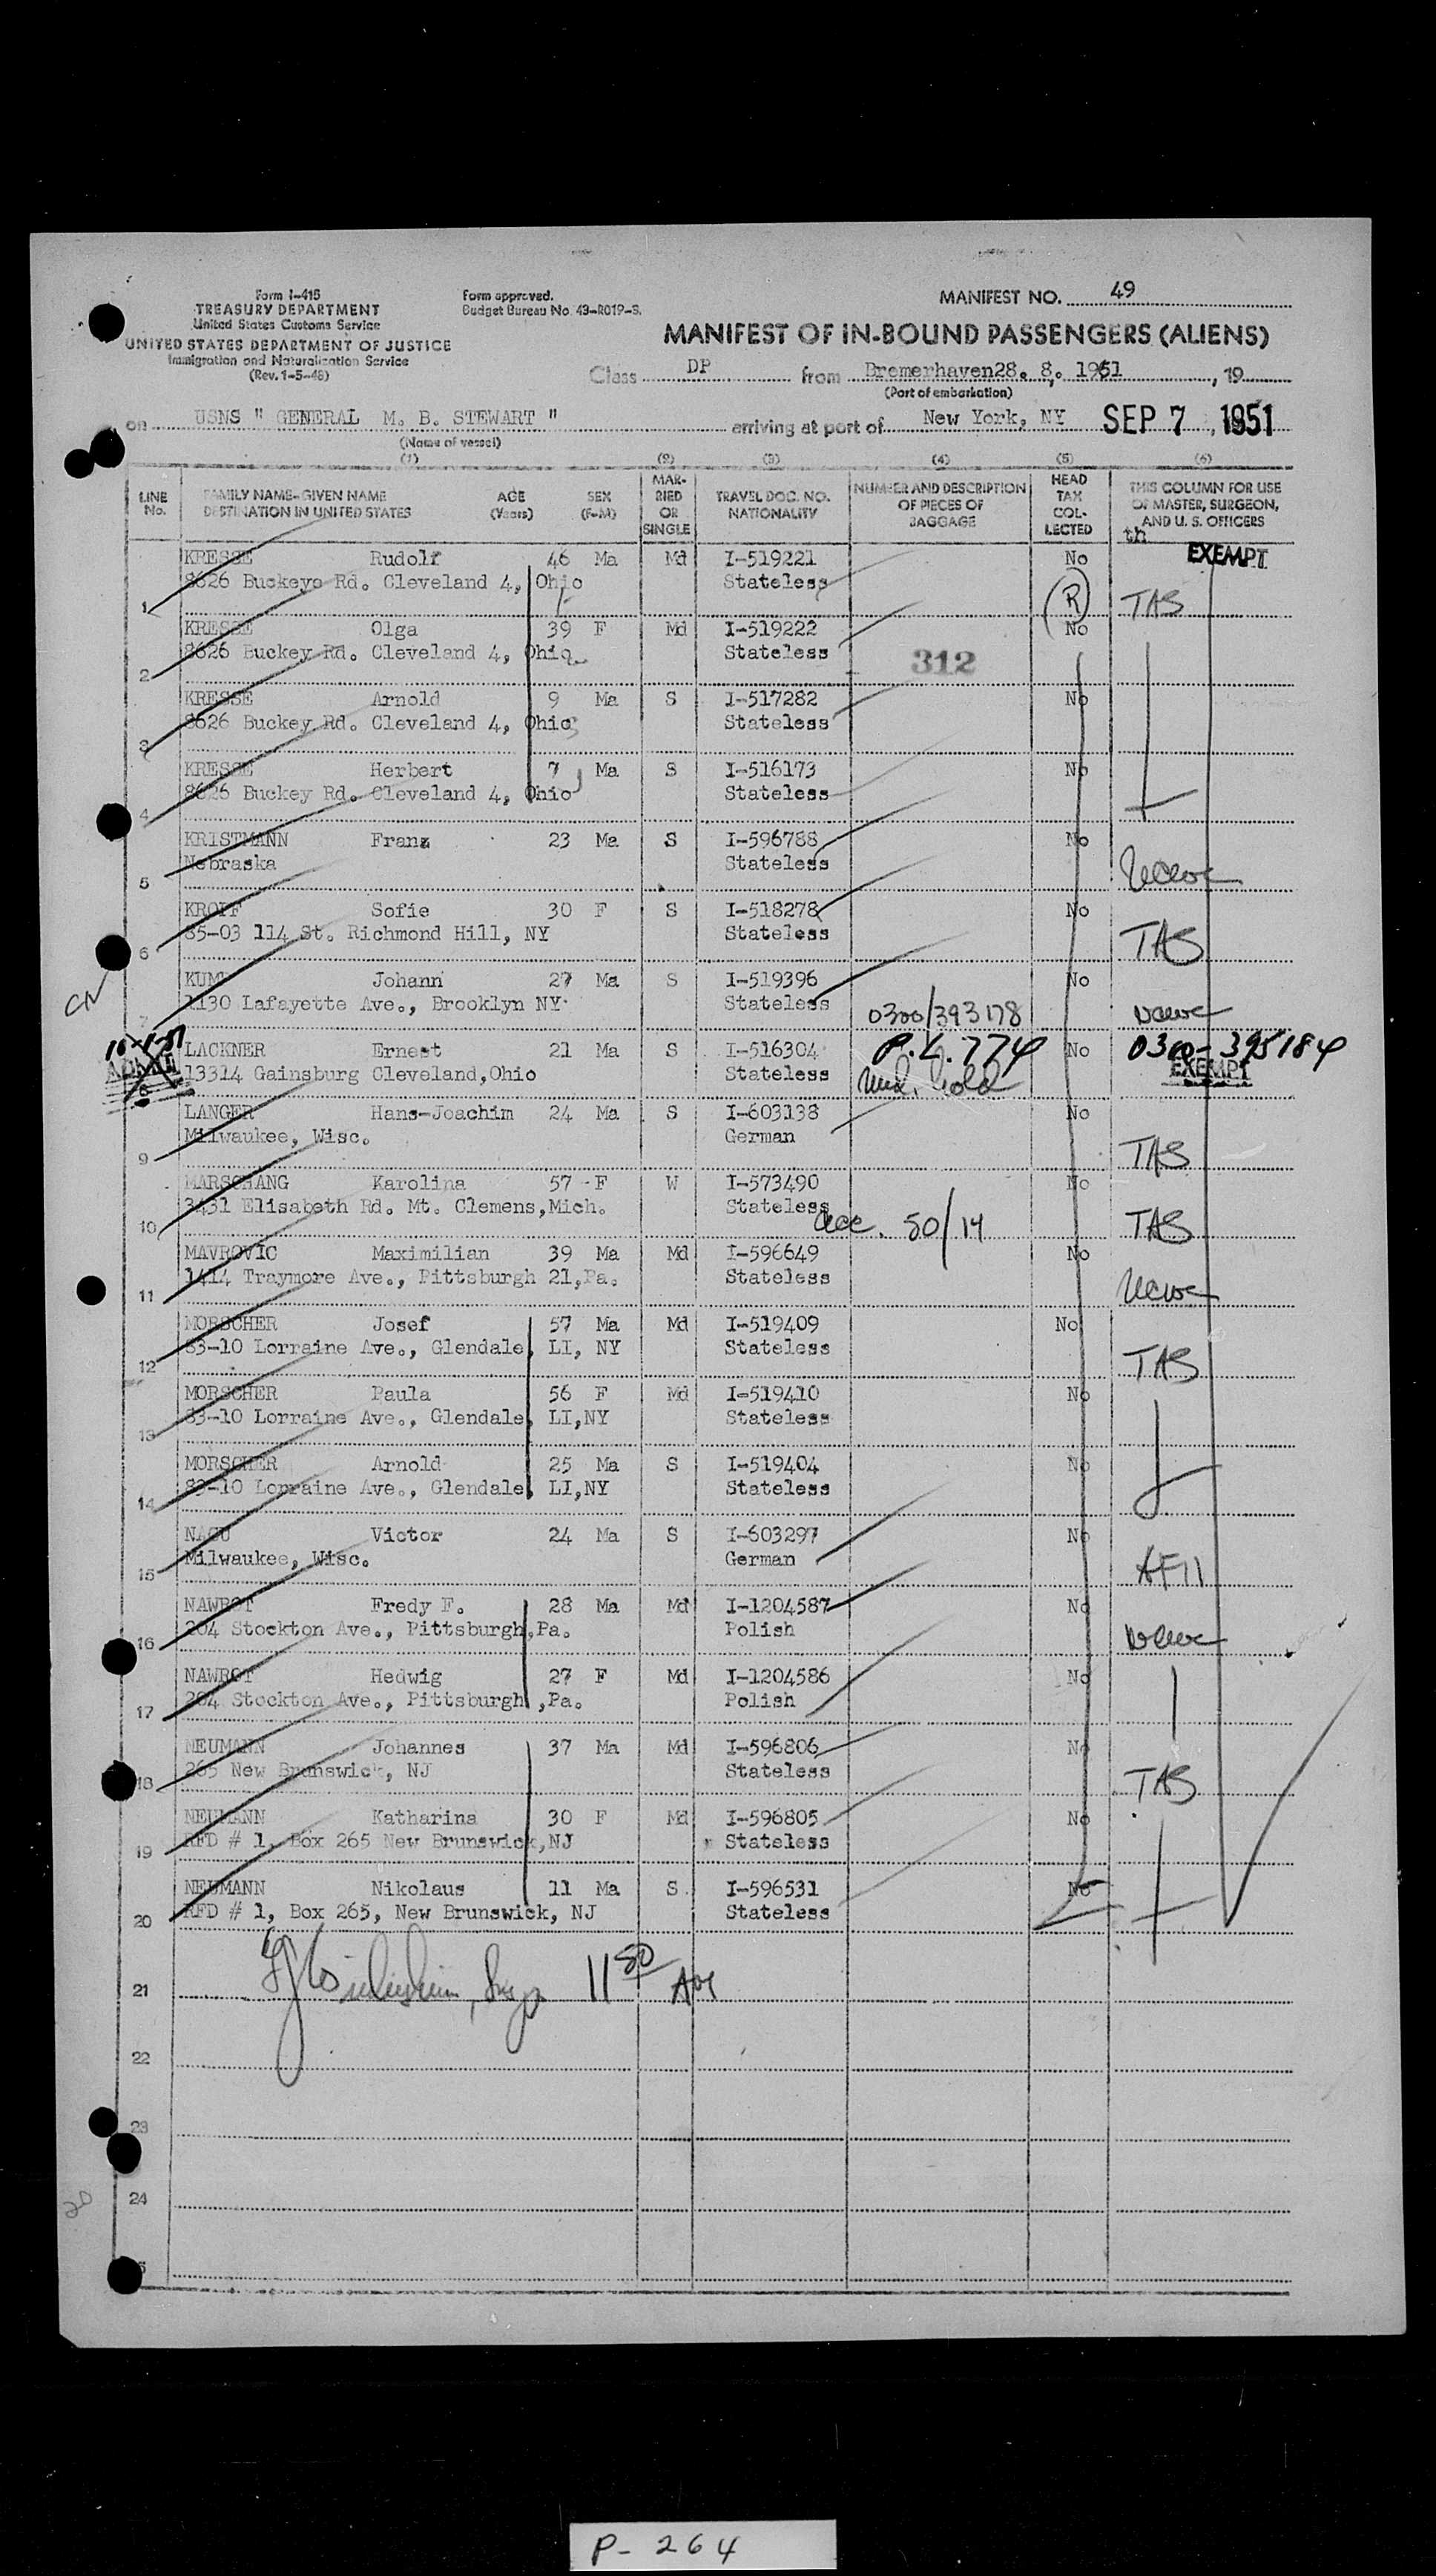 Form I-418
TREASURY DEPARTMENT
United States Customs Service
UNITED STATES DEPARTMENT OF JUSTICE
Immigration and Naturalization Service
(Rev. 1-5-48)
Form approved.
Budget Bureau No. 43-R019-3.
MANIFEST NO. 49
MANIFEST OF IN-BOUND PASSENGERS (ALIENS)
Class DP from Bremerhaven 28. 8. 1951, 19
(Port of embarkation)
on USNS " GENERAL M. B. STEWART " arriving at port of New York, NY SEP 7, 1951
(Name of vessel)
(1) (2) (3) (4) (5) (6)
LINE No. FAMILY NAME-GIVEN NAME DESTINATION IN UNITED STATES AGE (Years) SEX (F-M) MARRIED OR SINGLE TRAVEL DOC. NO. NATIONALITY NUMBER AND DESCRIPTION OF PIECES OF BAGGAGE HEAD TAX COLLECTED THIS COLUMN FOR USE OF MASTER, SURGEON, AND U. S. OFFICERS
KRESSE Rudolf 46 Ma Md I-519221 No EXEMPT
8626 Buckeye Rd. Cleveland 4, Ohio Stateless
1 (R) TAS
KRESSE Olga 39 F Md I-519222 No
8626 Buckey Rd. Cleveland 4, Ohio Stateless 312
2
KRESSE Arnold 9 Ma S I-517282 No
8626 Buckey Rd. Cleveland 4, Ohio Stateless
3
KRESSE Herbert 7 Ma S I-516173 No
8626 Buckey Rd. Cleveland 4, Ohio Stateless
4
KRISTMANN Franz 23 Ma S I-596788 No
Nebraska Stateless
5
KROPF Sofie 30 F S I-518278 No
85-03 114 St. Richmond Hill, NY Stateless TAS
6
KUMP Johann 27 Ma S I-519396 No
1130 Lafayette Ave., Brooklyn NY Stateless
7 0300/393178
LACKNER Ernest 21 Ma S I-516304 P.L. 774 No 0300-395184
13314 Gainsburg Cleveland,Ohio Stateless EXEMPT
8
LANGER Hans-Joachim 24 Ma S I-603138 No
Milwaukee, Wisc. German
9 TAS
MARSCHANG Karolina 57 F W I-573490 No
3431 Elisabeth Rd. Mt. Clemens,Mich. Stateless
10 50/14 TAS
MAVROVIC Maximilian 39 Ma Md I-596649 No
1414 Traymore Ave., Pittsburgh 21,Pa. Stateless
11
MORSCHER Josef 57 Ma Md I-519409 No
83-10 Lorraine Ave., Glendale, LI, NY Stateless
12 TAS
MORSCHER Paula 56 F Md I-519410 No
83-10 Lorraine Ave., Glendale, LI,NY Stateless
13
MORSCHER Arnold 25 Ma S I-519404 No
83-10 Lorraine Ave., Glendale, LI,NY Stateless
14
NAGU Victor 24 Ma S I-603297 No
Milwaukee, Wisc. German
15
NAWROT Fredy F. 28 Ma Md I-1204587 No
204 Stockton Ave., Pittsburgh,Pa. Polish
16
NAWROT Hedwig 27 F Md I-1204586 No
204 Stockton Ave., Pittsburgh ,Pa. Polish
17
NEUMANN Johannes 37 Ma Md I-596806 No
265 New Brunswick, NJ Stateless
18 TAS
NEUMANN Katharina 30 F Md I-596805 No
RFD # 1, Box 265 New Brunswick,NJ Stateless
19
NEUMANN Nikolaus 11 Ma S I-596531 No
RFD # 1, Box 265, New Brunswick, NJ Stateless
20
21 11 50 AM
22
23
24
P-264